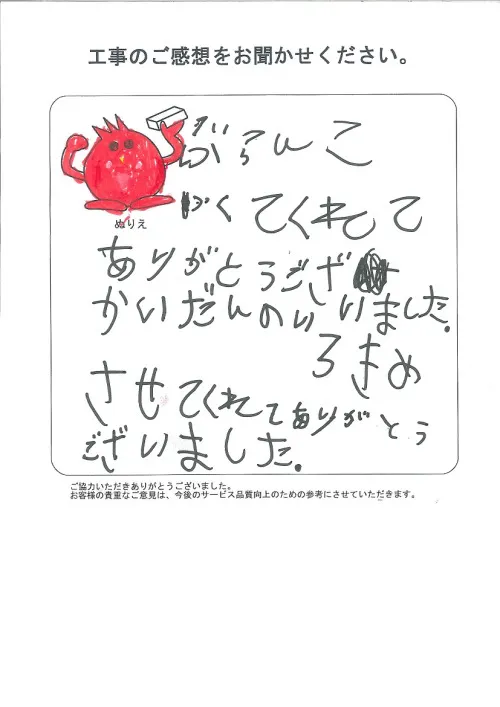 工事のご感想をお聞かせください。
ぶらんこ
くてくれてて
ぬりえ
ありがとうござ
かいだんのい いいました。
ろきめ
させてくれててありがとう
ございました。
ご協力いただきありがとうございました。
お客様の貴重なご意見は、今後のサービス品質向上のための参考にさせていただきます。